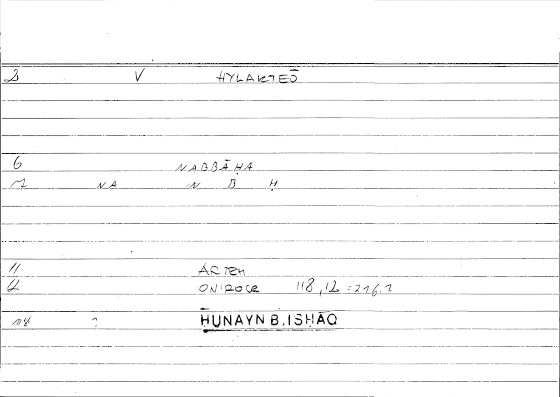 2 V HYLAKTEŌ
6 NABBĀḤA
7 NA N B Ḥ
11 ARTEM
12 ONIROCR 118,12 = 216.2
14 ? ḤUNAYN B. ISḤĀQ